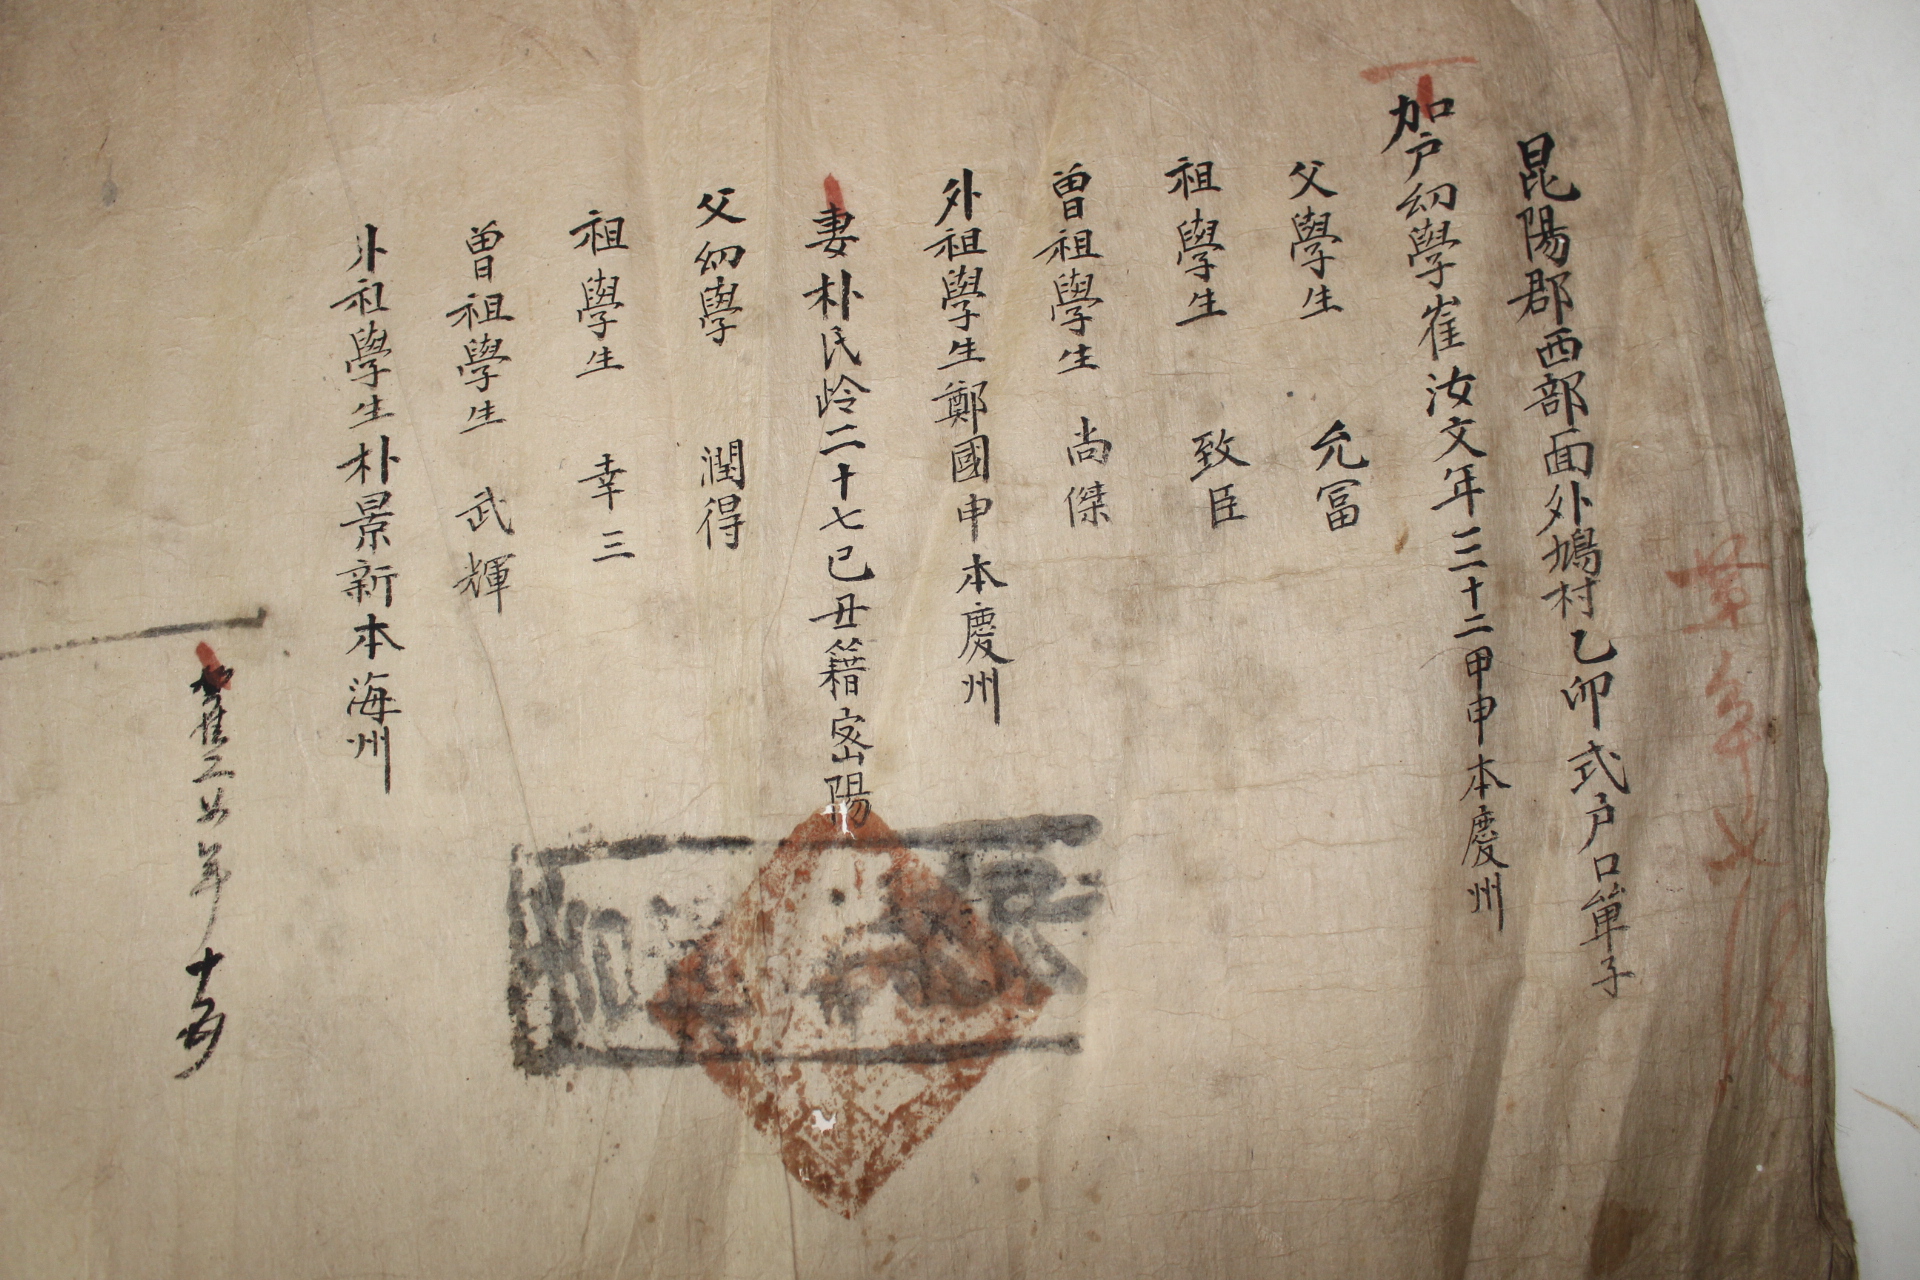 昆陽郡西部面外鳩村乙卯式戶口單子
加戶幼學崔汝文年三十二甲申本慶州
父學生 允冨
祖學生 致臣
曾祖學生 尚傑
外祖學生鄭國申本慶州
妻朴氏岭二十七己丑籍密陽
父幼學 潤得
祖學生 幸三
曾祖學生 武輝
外祖學生朴景新本海州
年十